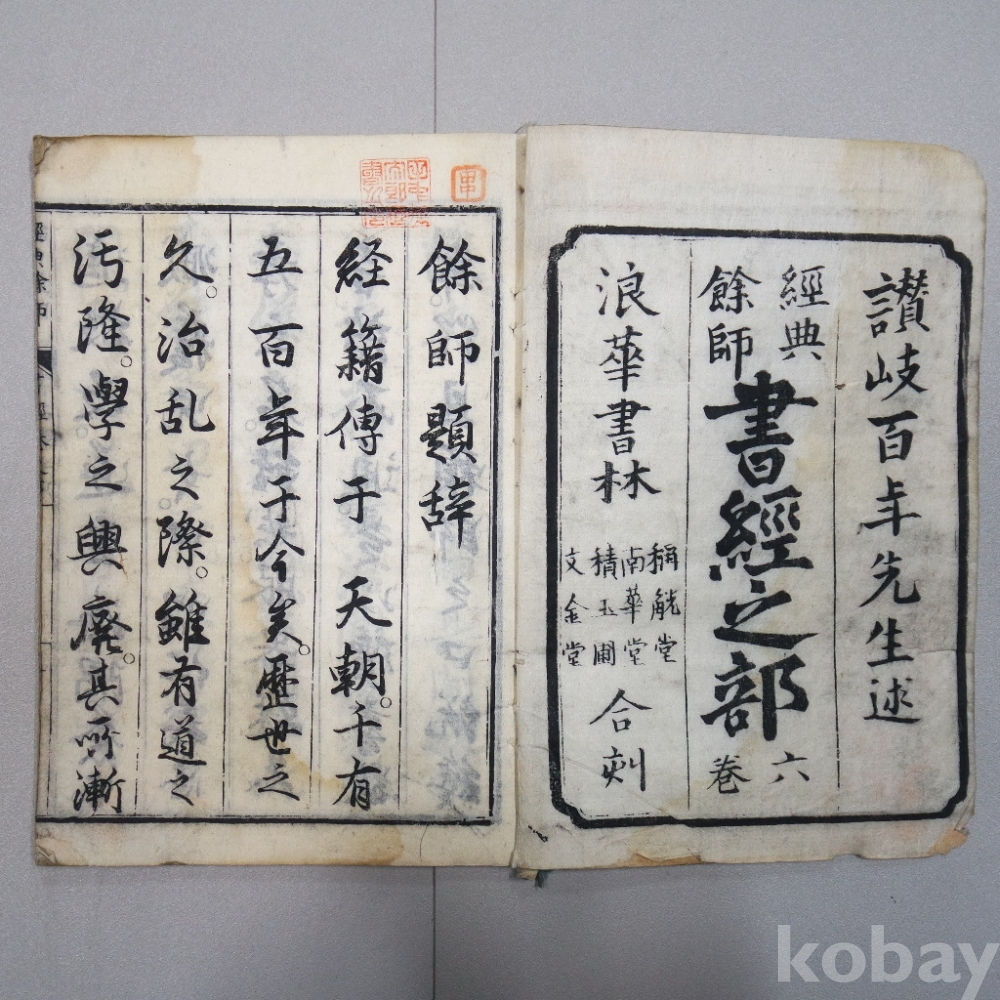 讃岐百年先生述
經典
餘師
書經之部
六
卷
浪華書林
稱觥堂
南華堂
積玉圃
文金堂
合刻
餘師題辞
経籍傳于　天朝。千有
五百年于今矣。歴世之
久。治乱之際。雖有道之
汚隆。學之興廃。其所漸
kobay